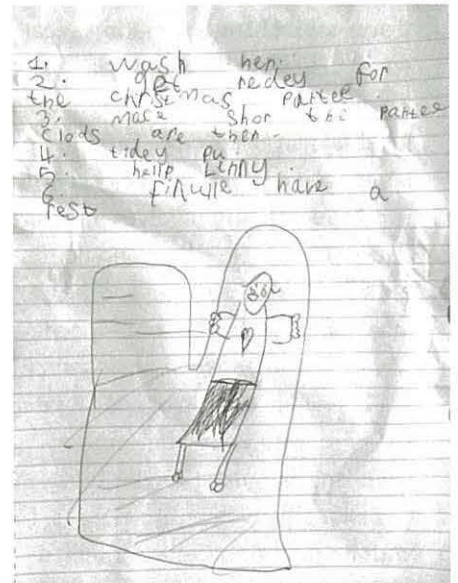 1. wash her.
2. get redey for
the christmas partee.
3. mace shor the partee
clods are ther.
4. tidey pu
5. hellp Linny
6. Finulle have a
rest